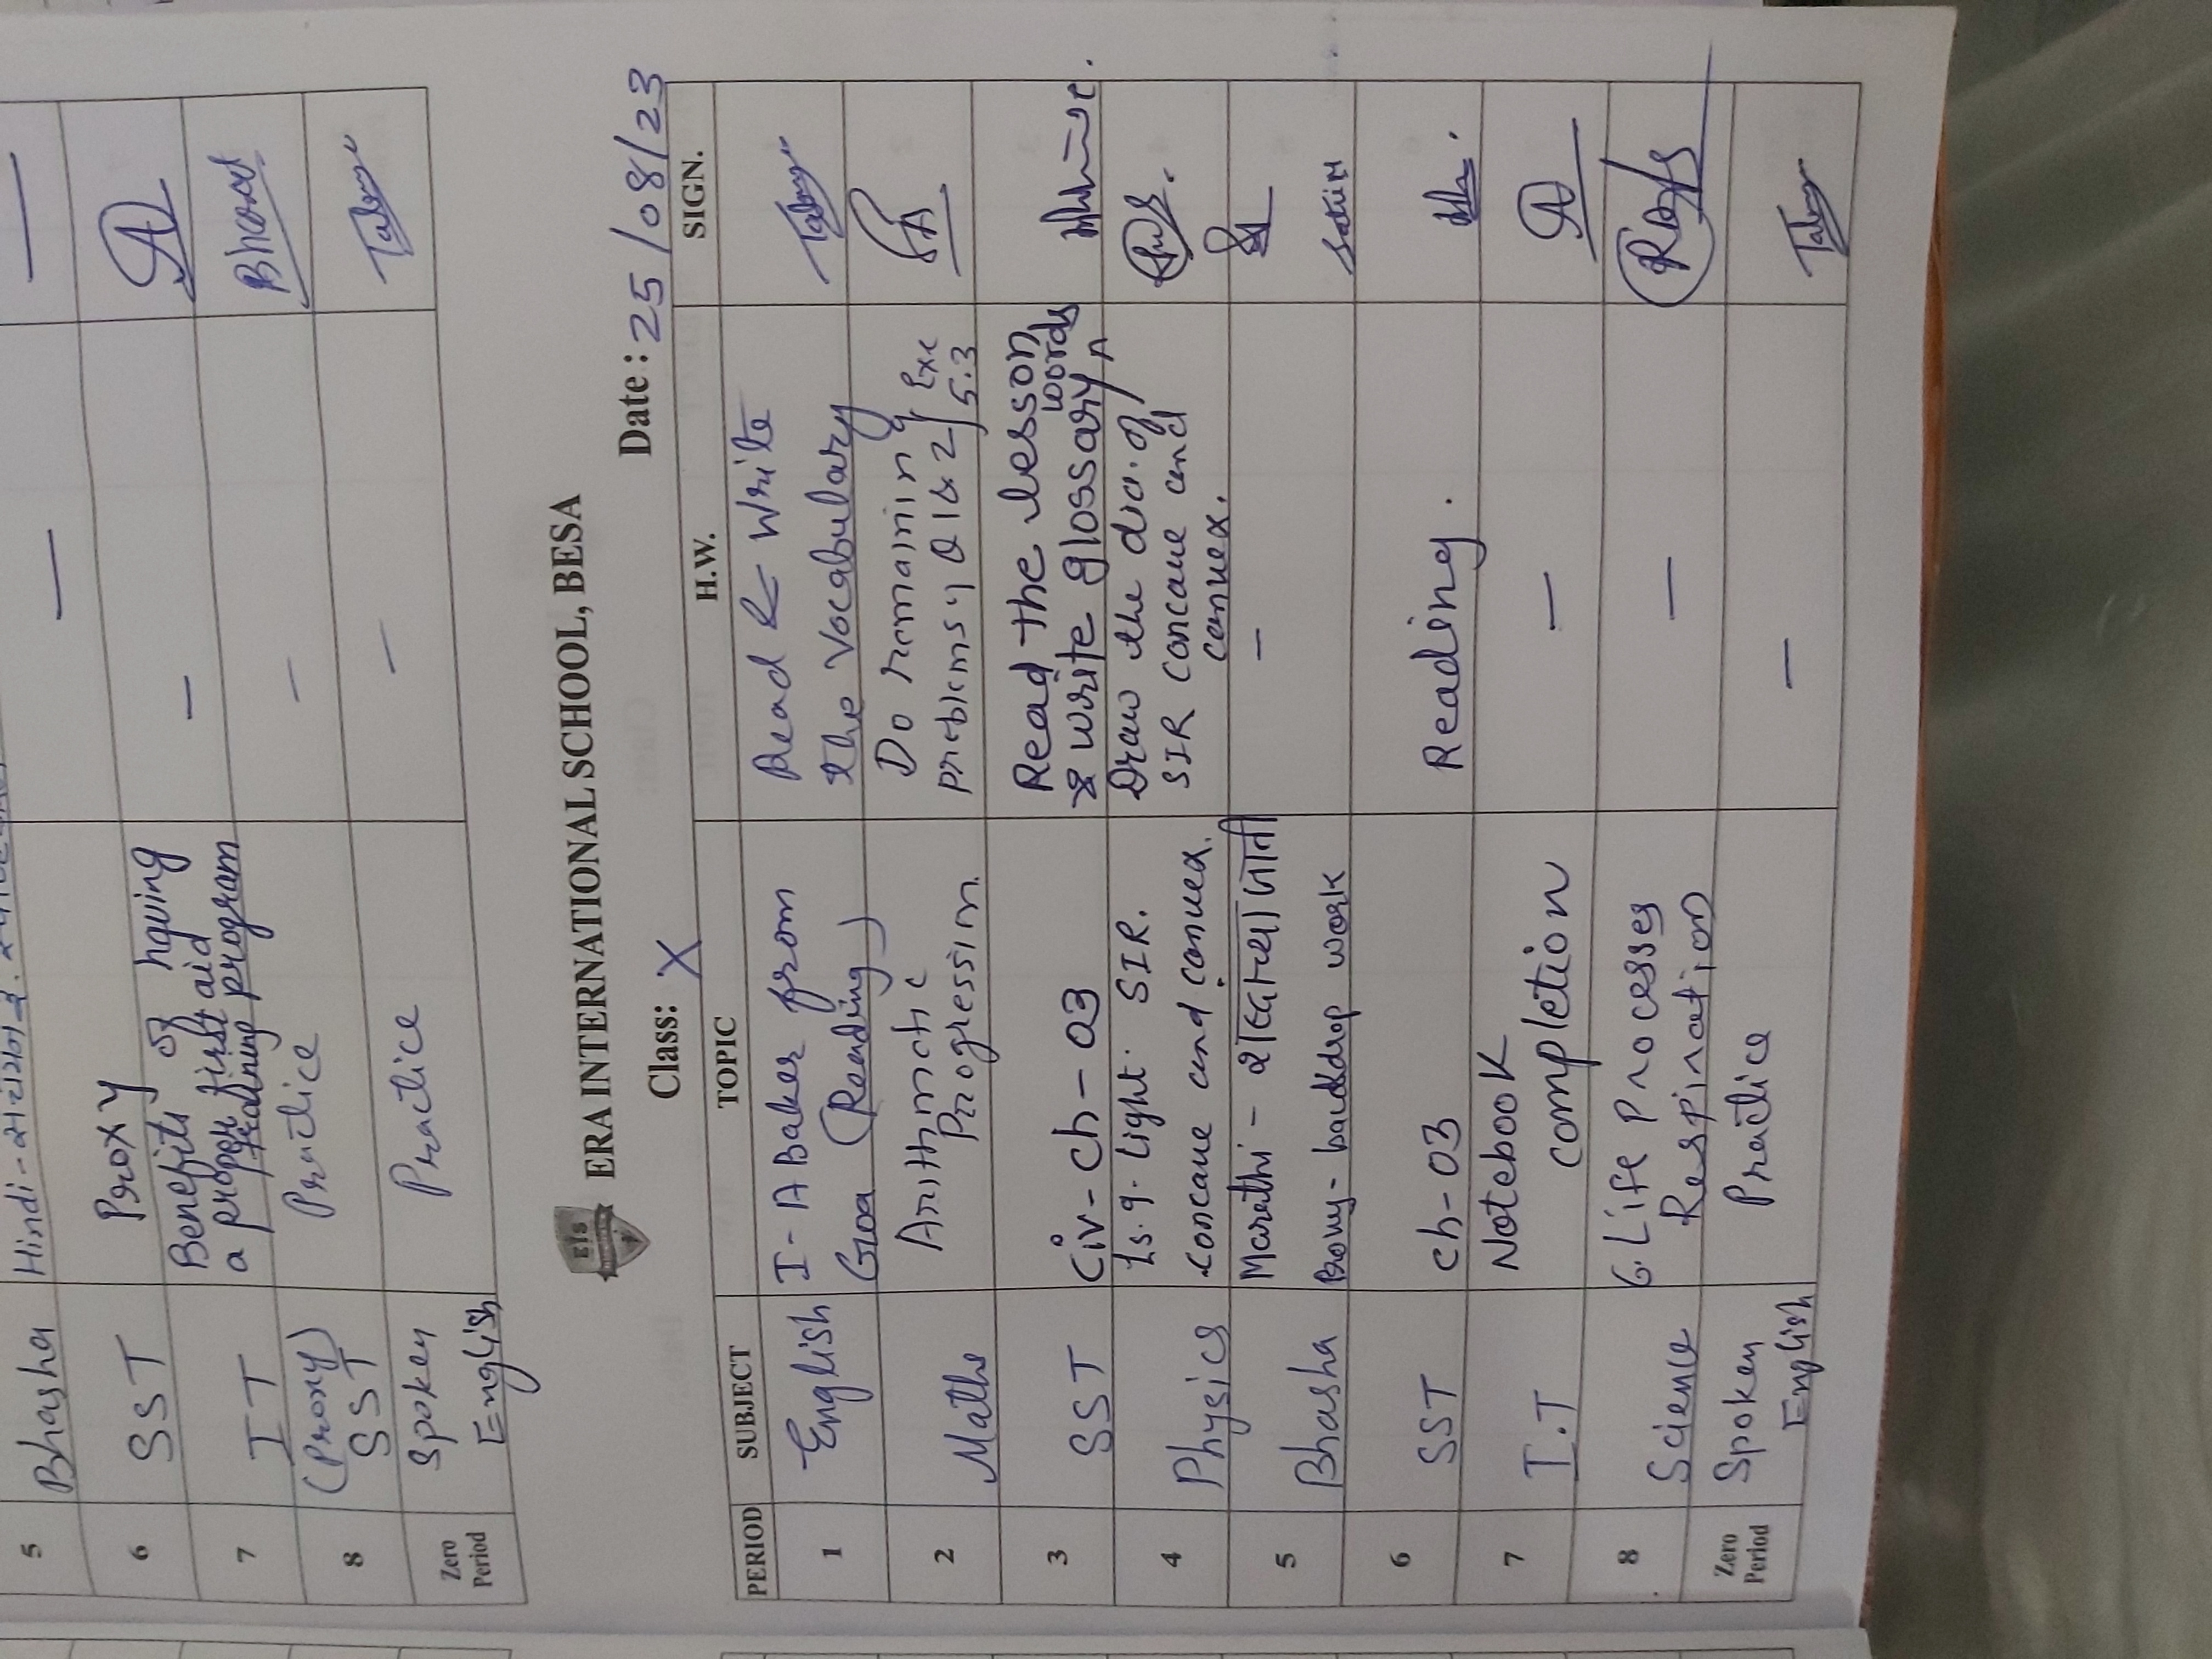 5 Bhasha Hindi -
6 SST Proxy
7 IT Benefits of having
a proper first aid
training program
Bharat
(Proxy) Practice
8 SST
Zero Period Spoken English Practice
EIS
ERA INTERNATIONAL SCHOOL, BESA
Class: X Date : 25/08/23
PERIOD SUBJECT TOPIC H.W. SIGN.
1 English I - A Baker from Read & Write
Goa (Reading) the Vocabulary
2 Maths Arithmetic Do remaining
Progression. problems of Q 1 & 2 Exe 5.3
3 SST Civ - Ch - 03 Read the lesson
& write glossary words
4 Physics Ls. 9. Light. SIR. Draw the dia. of
concave and convex. SIR concave and
convex.
5 Bhasha Marathi - शब्दांच्या जाती —
Proxy - backdrop work
6 SST Ch - 03 Reading.
7 I.T Notebook
completion —
8 Science 6. Life Processes
Respiration —
Zero Period Spoken English Practice —